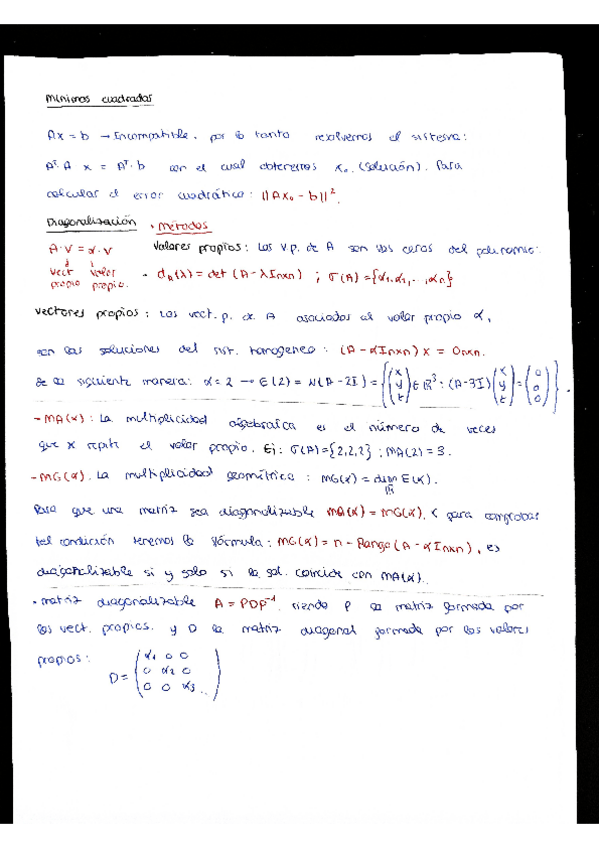 Mínimos cuadrados
Ax = b → Incompatible. por lo tanto resolvemos el sistema:
Aᵗ·A x = Aᵗ·b con el cual obtenemos x₀. (solución). Para
calcular el error cuadrático: ||Ax₀ - b||².
Diagonalización · Métodos
A·v = α·v Valores propios: Los v.p. de A son los ceros del polinomio:
↓ ↓
vect valor - d_A(λ) = det (A - λInxn) ; σ(A) = {α1, α2, ..., αn}
propio propio.
Vectores propios: Los vect. p. de A asociados al valor propio α,
son las soluciones del sist. homogeneo: (A - αInxn) x = 0nxn.
de la siguiente manera: α = 2 → E(2) = N(A - 2I) = {(x y z) ∈ ℝ³ : (A - 3I)(x y z) = (0 0 0)}.
- MA(α): La multiplicidad algebraica es el número de veces
que x repite el valor propio. Ej: σ(A) = {2,2,2} ; MA(2) = 3.
- MG(α). La multiplicidad geométrica : MG(α) = dim E(α).
ℝ
Para que una matriz sea diagonalizable MA(α) = MG(α). < para comprobar
tal condición tenemos la fórmula: MG(α) = n - Rango (A - αInxn), es
diagonalizable si y solo si la sol. coincide con MA(α).
· matriz diagonalizable A = PDP⁻¹. siendo P la matriz formada por
los vect. propios. y D la matriz diagonal formada por los valores
propios:
D = (α1 0 0
0 α2 0
0 0 α3 ..)